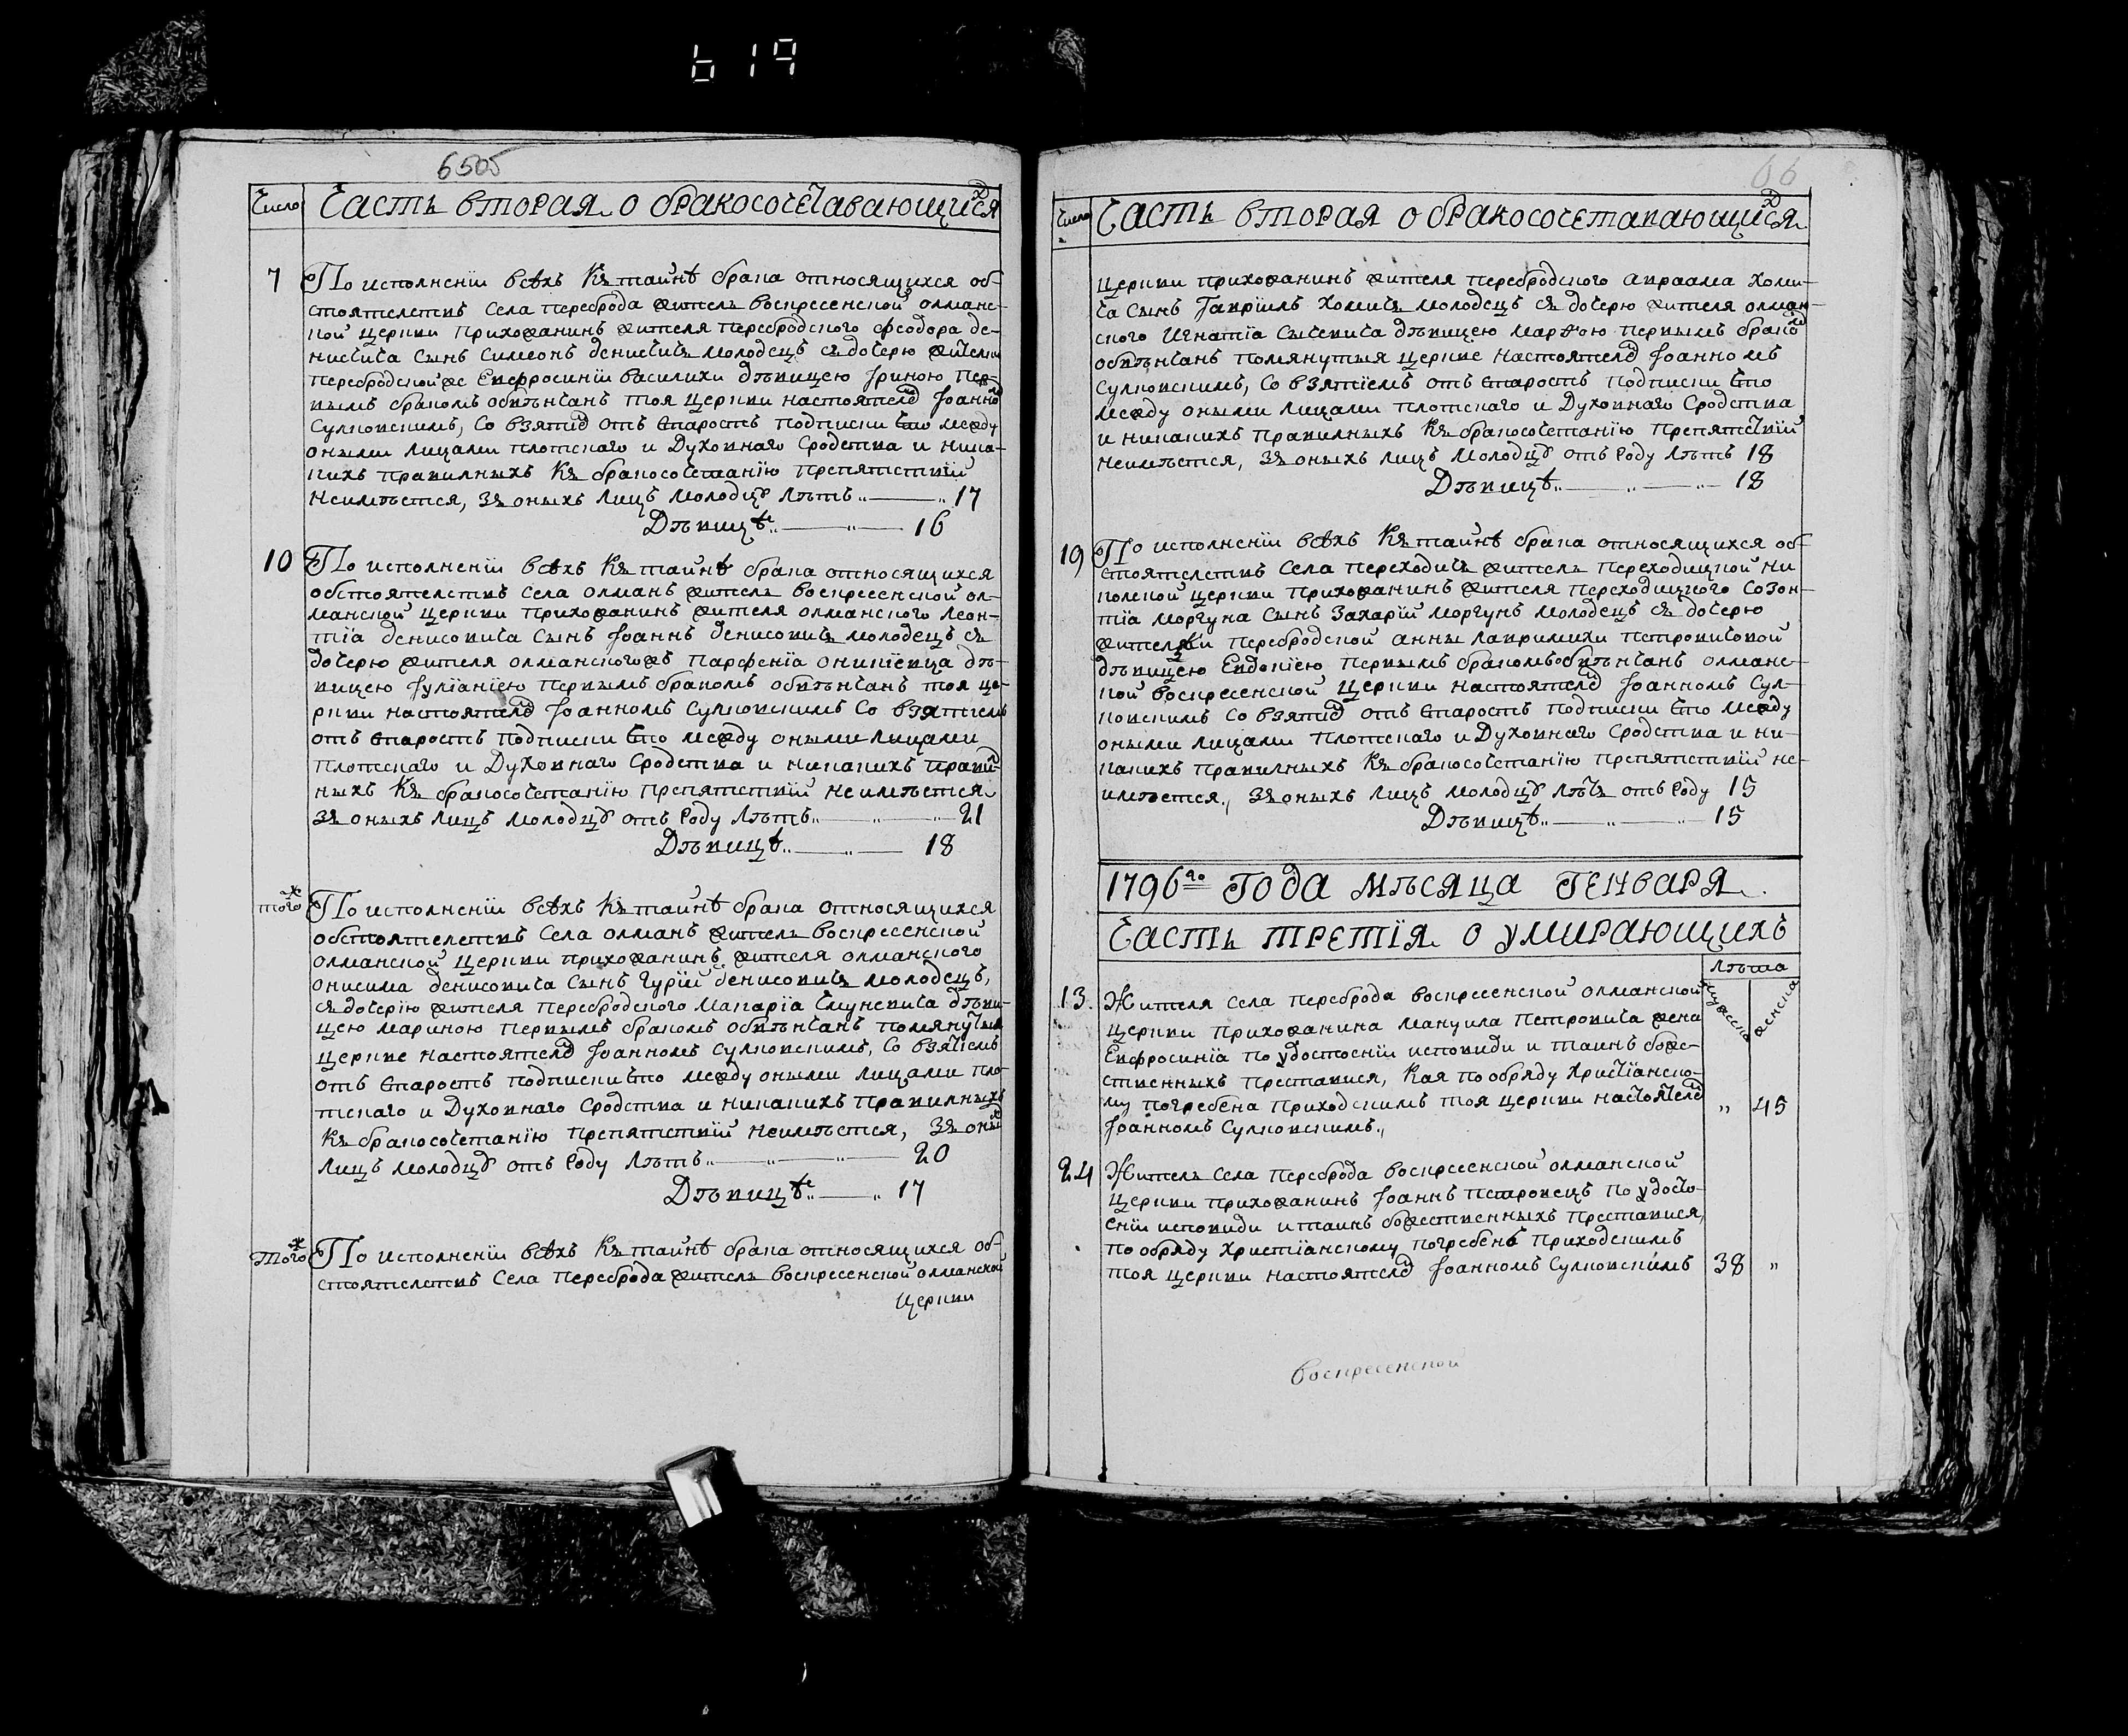 619
65об
Число Часть вторая о бракосочетавающихся
7 По исполненїи всѣхъ къ тайнѣ брака относящихся об-
стоятелствъ села переброда житель воскресенской олманс-
кой церкви прихожанинъ жителя перебродского феодора де-
нисчича сынъ Симеонъ денисчичъ молодецъ съ дочерю жителки
перебродской же Евфросинїи василихи дѣвицею Iриною пер-
вымъ бракомъ обвѣнчанъ тоя церкви настоятелемъ Iоанномъ
Сулковскимъ, со взятиемъ отъ старостъ подписки что между
оными лицами плотскаго и Духовнаго Сродства и ника-
кихъ правилныхъ къ бракосочетанїю препятствїй
неимѣется, зъ оныхъ лицъ молодцу лѣтъ „ — „ 17
Дѣвицѣ „ — „ — 16
10 По исполненїи всѣхъ къ тайнѣ брака относящихся
обстоятелствъ села олманъ житель воскресенской ол-
манской церкви прихожанинъ жителя олманского леон-
тїа денисовича сынъ Iоаннъ денисовичъ молодецъ съ
дочерю жителя олманского жъ Парфенїа онипїевца дѣ-
вицею Iулїанїею первымъ бракомъ обвѣнчанъ тоя це-
ркви настоятелемъ Iоанномъ Сулковскимъ со взятїемъ
отъ старостъ подписки что между оными лицами
плотскаго и Духовнаго Сродства и никакихъ правил-
ныхъ къ бракосочетанїю препятствїй неимѣется
зъ оныхъ лицъ молодцу отъ роду лѣтъ „ — „ — „ 21
Дѣвицѣ „ — „ — 18
того ж По исполненїи всѣхъ къ тайнѣ брака относящихся
обстоятелствъ села олманъ житель воскресенской
олманской церкви прихожанинъ жителя олманского
онисима денисовича сынъ Гурїй денисовичъ молодецъ,
съ дочерїю жителя перебродского Макарїа дѣви-
цею Мариною первымъ бракомъ обвѣнчанъ помянутыя
церкве настоятелемъ Iоанномъ Сулковскимъ, со взятїемъ
отъ старостъ подписки что между оными лицами пло-
тскаго и Духовнаго Сродства и никакихъ правилныхъ
къ бракосочетанїю препятствїй неимѣется, зъ оныхъ
лицъ молодцу отъ роду лѣтъ „ — „ — „ — 20
Дѣвицѣ „ — „ 17
того ж По исполненїи всѣхъ къ тайнѣ брака относящихся об-
стоятелствъ села переброда житель воскресенской олманской
церкви
66
Число Часть вторая о бракосочетавающихся
церкви прихожанинъ жителя перебродского Авраама хоми-
ча сынъ Гавриїлъ хомичъ молодецъ съ дочерю жителя олман-
ского Игнатїа дѣвицею марѳою первымъ бракомъ
обвѣнчанъ помянутыя церкве настоятелемъ Iоанномъ
Сулковскимъ, со взятїемъ отъ старостъ подписки что
между оными лицами плотскаго и Духовнаго Сродства
и никакихъ правилныхъ къ бракосочетанїю препятствїй
неимѣется, зъ оныхъ лицъ молодцу отъ роду лѣтъ 18
Дѣвицѣ „ — „ — „ — 18
19 По исполненїи всѣхъ къ тайнѣ брака относящихся об-
стоятелствъ села переходичъ житель переходицкой ни
колской церкви прихожанинъ жителя переходицкого созон-
тїа моргуна сынъ Захарїй моргунъ молодецъ съ дочерю
жителки перебродской анны лавримихи петровичовой
дѣвицею Евдокїею первымъ бракомъ обвѣнчанъ олманс-
кой воскресенской церкви настоятелемъ Iоанномъ Сул-
ковскимъ со взятиемъ отъ старостъ подписки что между
оными лицами плотскаго и Духовнаго Сродства и ни-
какихъ правилныхъ къ бракосочетанїю препятствїй не-
имѣется, зъ оныхъ лицъ молодцу лѣтъ отъ роду 15
Дѣвицѣ „ — „ — „ — 15
1796го Года мѣсяца Генваря
Часть третїя о умирающихъ
лѣта
мужеска женска
13. Жителя села переброда воскресенской олманской
церкви прихожанина Мануила петровича жена
Евфросинїа по удостоенїи исповиди и таинъ боже-
ственныхъ преставися, кая по обряду христїанско-
му погребена приходскимъ тоя церкви настоятелемъ „ 45
Iоанномъ Сулковскимъ „
24 Житель села переброда воскресенской олманской
церкви прихожанинъ Iоаннъ петровецъ по удосто-
енїи исповиди и таинъ божественныхъ преставися,
по обряду христїанскому погребенъ приходскимъ
тоя церкви настоятелемъ Iоанномъ Сулковскимъ 38 „
воскресенской